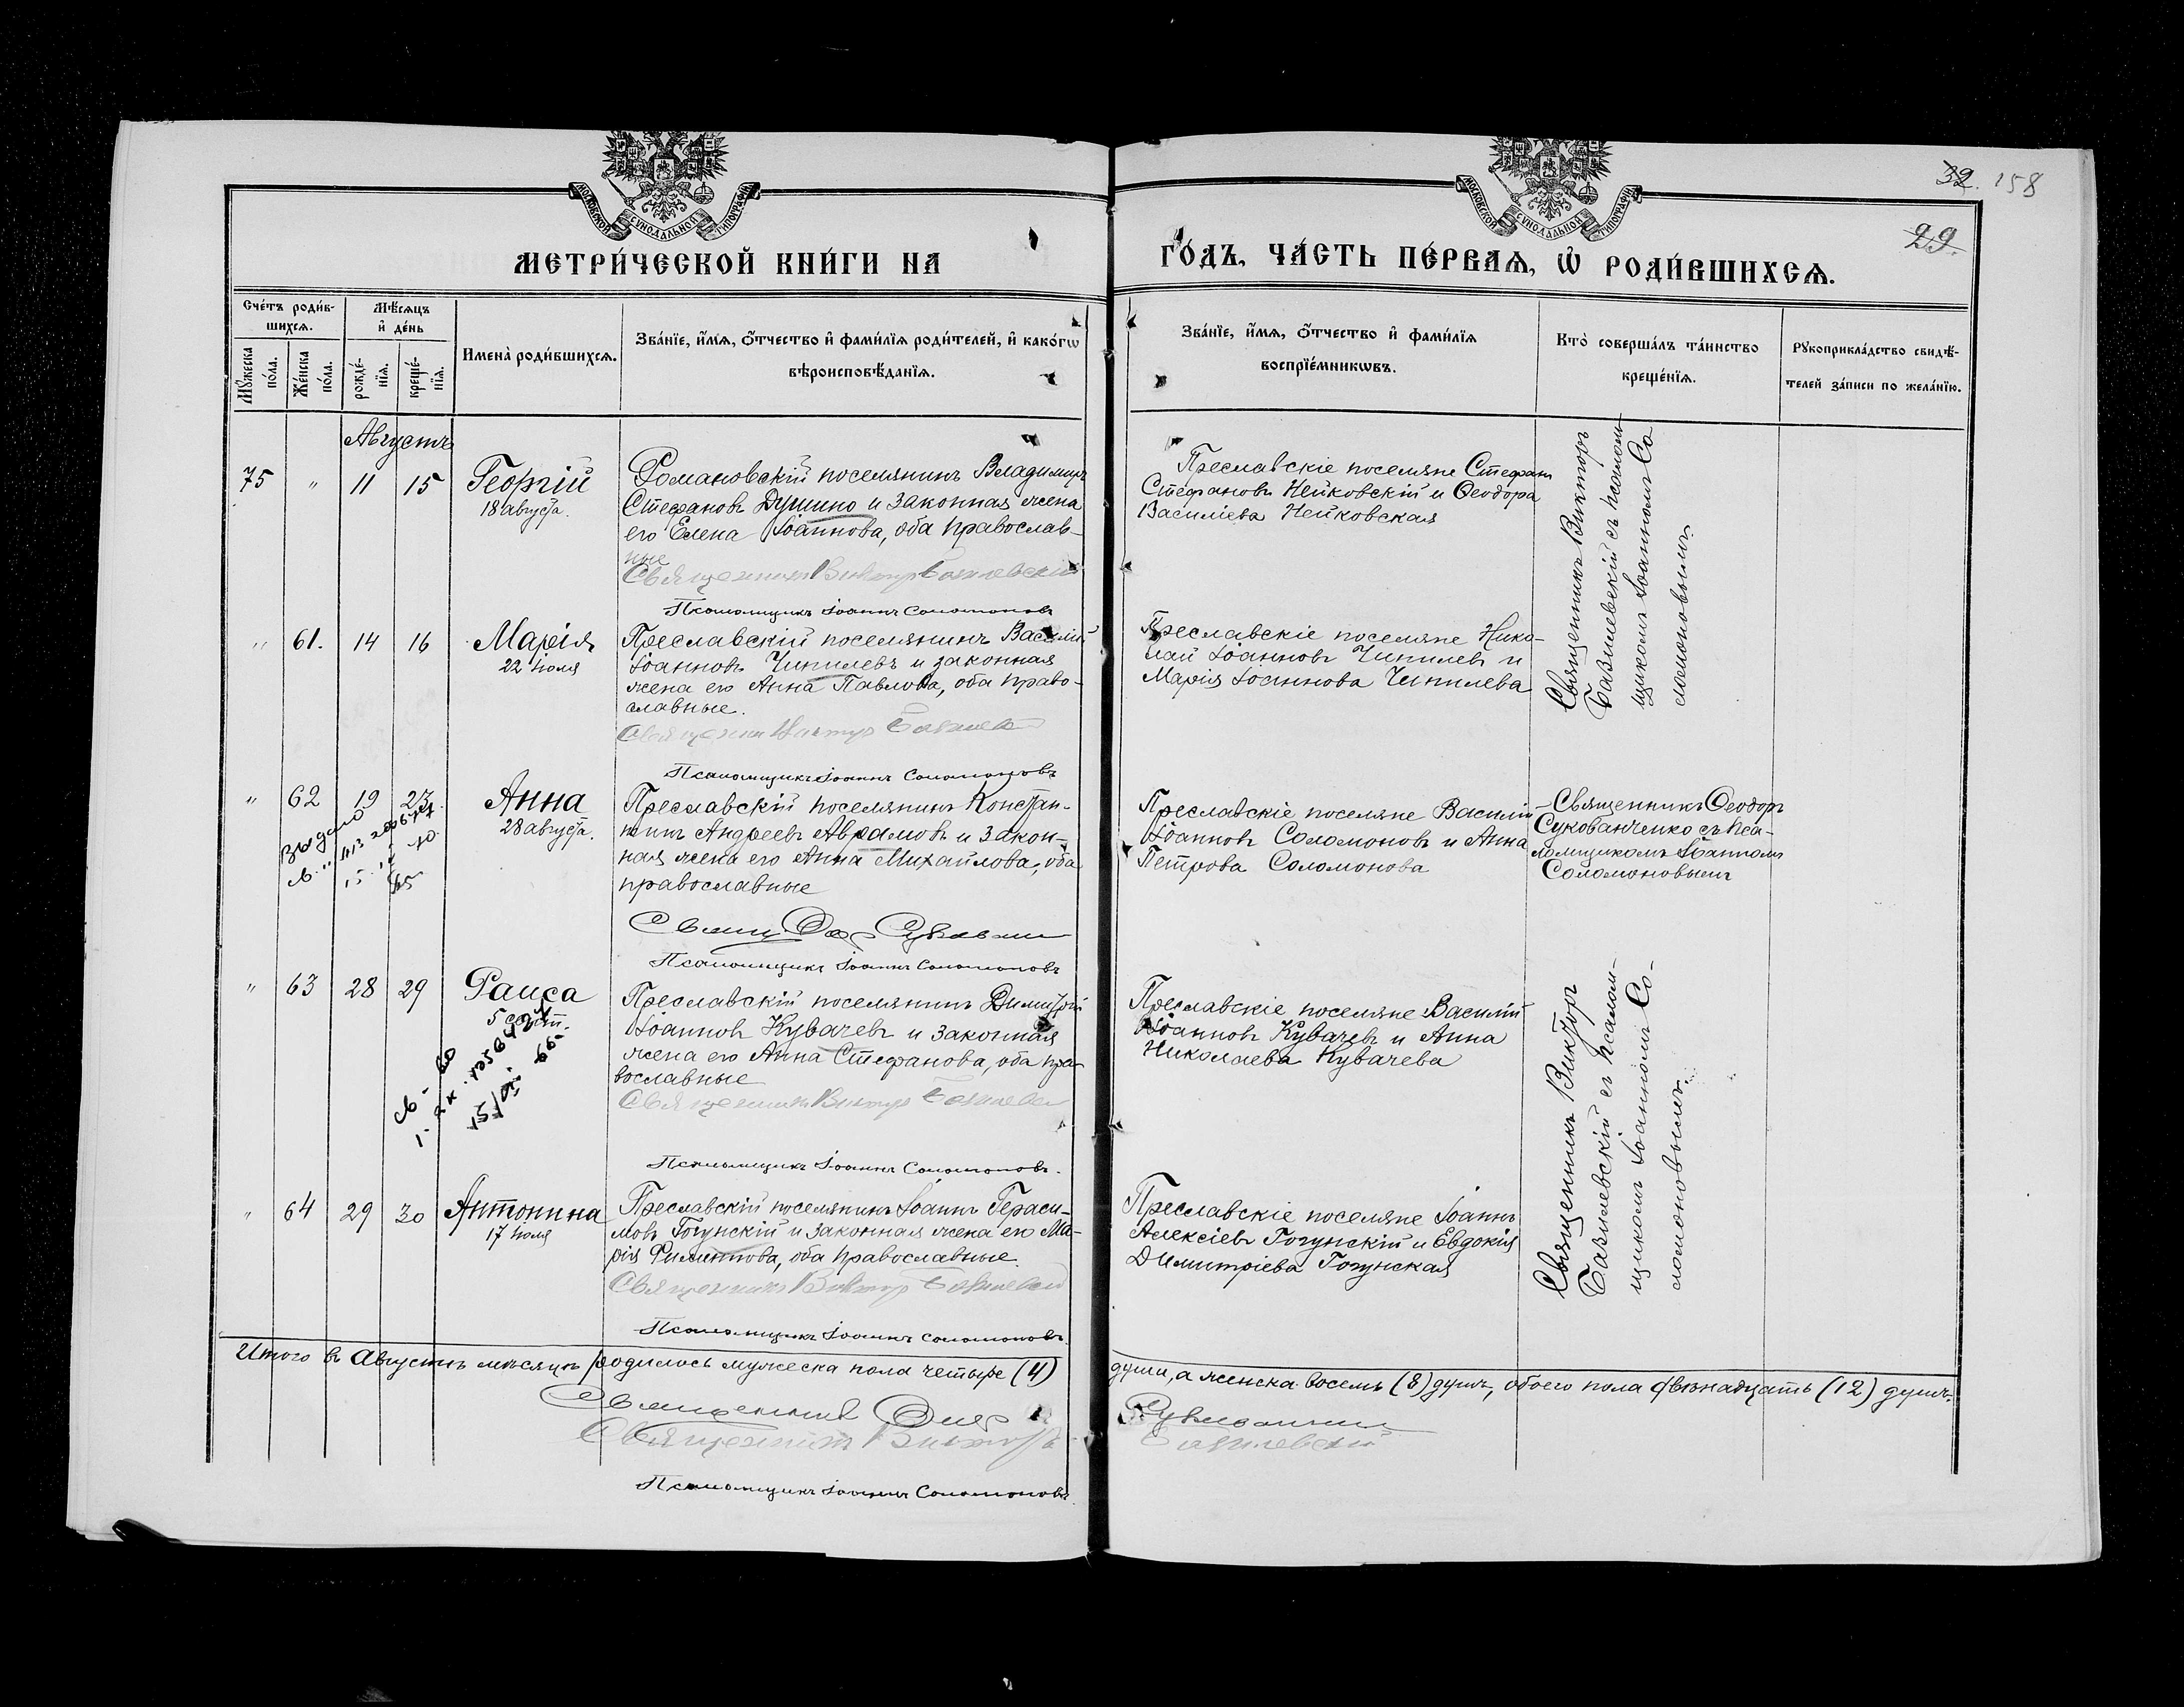 МОСКОВСКОЙ СѴНОДАЛЬНОЙ ТИПОГРАФІИ
МОСКОВСКОЙ СѴНОДАЛЬНОЙ ТИПОГРАФІИ
32. 158
29.
МЕТРИ́ЧЕСКОЙ КНИ́ГИ НА
ГО́ДЪ, ЧА́СТЬ ПЕ́РВАѦ, Ѡ҆ РОДИ́ВШИХСѦ.
Сче́тъ роди́в-
шихсѧ.
Мѣ́сѧцъ
и҆ де́нь
Мꙋ́жеска
по́ла.
Же́нска
по́ла.
рожде́-
нїѧ.
креще́-
нїѧ.
Имена̀ роди́вшихсѧ.
Зва́нїе, и҆́мѧ, ѻ҆́тчество и҆ фами́лїѧ роди́телей, и҆ како́гѡ
вѣроисповѣ́данїѧ.
Зва́нїе, и҆́мѧ, ѻ҆́тчество и҆ фами́лїѧ
воспрїе́мникѡвъ.
Кто̀ соверша́лъ та́инство
креще́нїѧ.
Рꙋкоприкла́дство свидѣ́-
телей за́писи по жела́нїю.
Августъ
75 " 11 15 Георгій
18 августа.
Романовскій поселянинъ Владимиръ
Стефановъ Душино и законная жена
его Елена Іоаннова, оба православ-
ные
Священникъ Викторъ Базилевскій
Псаломщикъ Іоаннъ Соломоновъ
Преславскіе поселяне Стефанъ
Стефановъ Нейковскій и Ѳеодора
Василіева Нейковская
Священникъ Викторъ
Базилевскій съ псалом-
щикомъ Іоанномъ Со-
ломоновымъ.
" 61. 14 16 Марія
22 іюля
Преславскій поселянинъ Василій
Іоанновъ Чипилевъ и законная
жена его Анна Павлова, оба право-
славные.
Священникъ Викторъ Базилев
Псаломщикъ Іоаннъ Соломоновъ
Преславскіе поселяне Нико-
лай Іоанновъ Чипилевъ и
Марія Іоаннова Чипилева
" 62 19 23. Анна
28 августа.
Выдано
Преславскій поселянинъ Констан-
тинъ Андреевъ Аврамовъ и закон-
ная жена его Анна Михайлова, оба
православные
Псаломщикъ Іоаннъ Соломоновъ
Преславскіе поселяне Василій
Іоанновъ Соломоновъ и Анна
Петрова Соломонова
Священникъ Ѳеодоръ
Сукованченко съ пса-
ломщикомъ Іоанномъ
Соломоновымъ
" 63 28 29 Раиса
5 сент.
Преславскій поселянинъ Димитрій
Іоанновъ Кувачевъ и законная
жена его Анна Стефанова, оба пра-
вославные
Священникъ Викторъ Базилевск
Псаломщикъ Іоаннъ Соломоновъ.
Преславскіе поселяне Василій
Іоанновъ Кувачевъ и Анна
Николаева Кувачева
Священникъ Викторъ
Базилевскій съ псалом-
щикомъ Іоанномъ Со-
ломоновымъ.
" 64 29 30 Антонина
17 іюля
Преславскій поселянинъ Іоаннъ Гераси-
мовъ Гогунскій и законная жена его Ма-
рія Филиппова, оба православные.
Священникъ Викторъ Базилевскій
Псаломщикъ Іоаннъ Соломоновъ.
Преславскіе поселяне Іоаннъ
Алексіевъ Гогунскій и Евдокія
Димитріева Гогунская
Итого въ Августѣ мѣсяцѣ родилось мужеска пола четыре (4)
души, а женска восемь (8) душъ, обоего пола двѣнадцать (12) душъ.
Священникъ
Священникъ Викторъ
Базилевскій
Псаломщикъ Іоаннъ Соломоновъ.